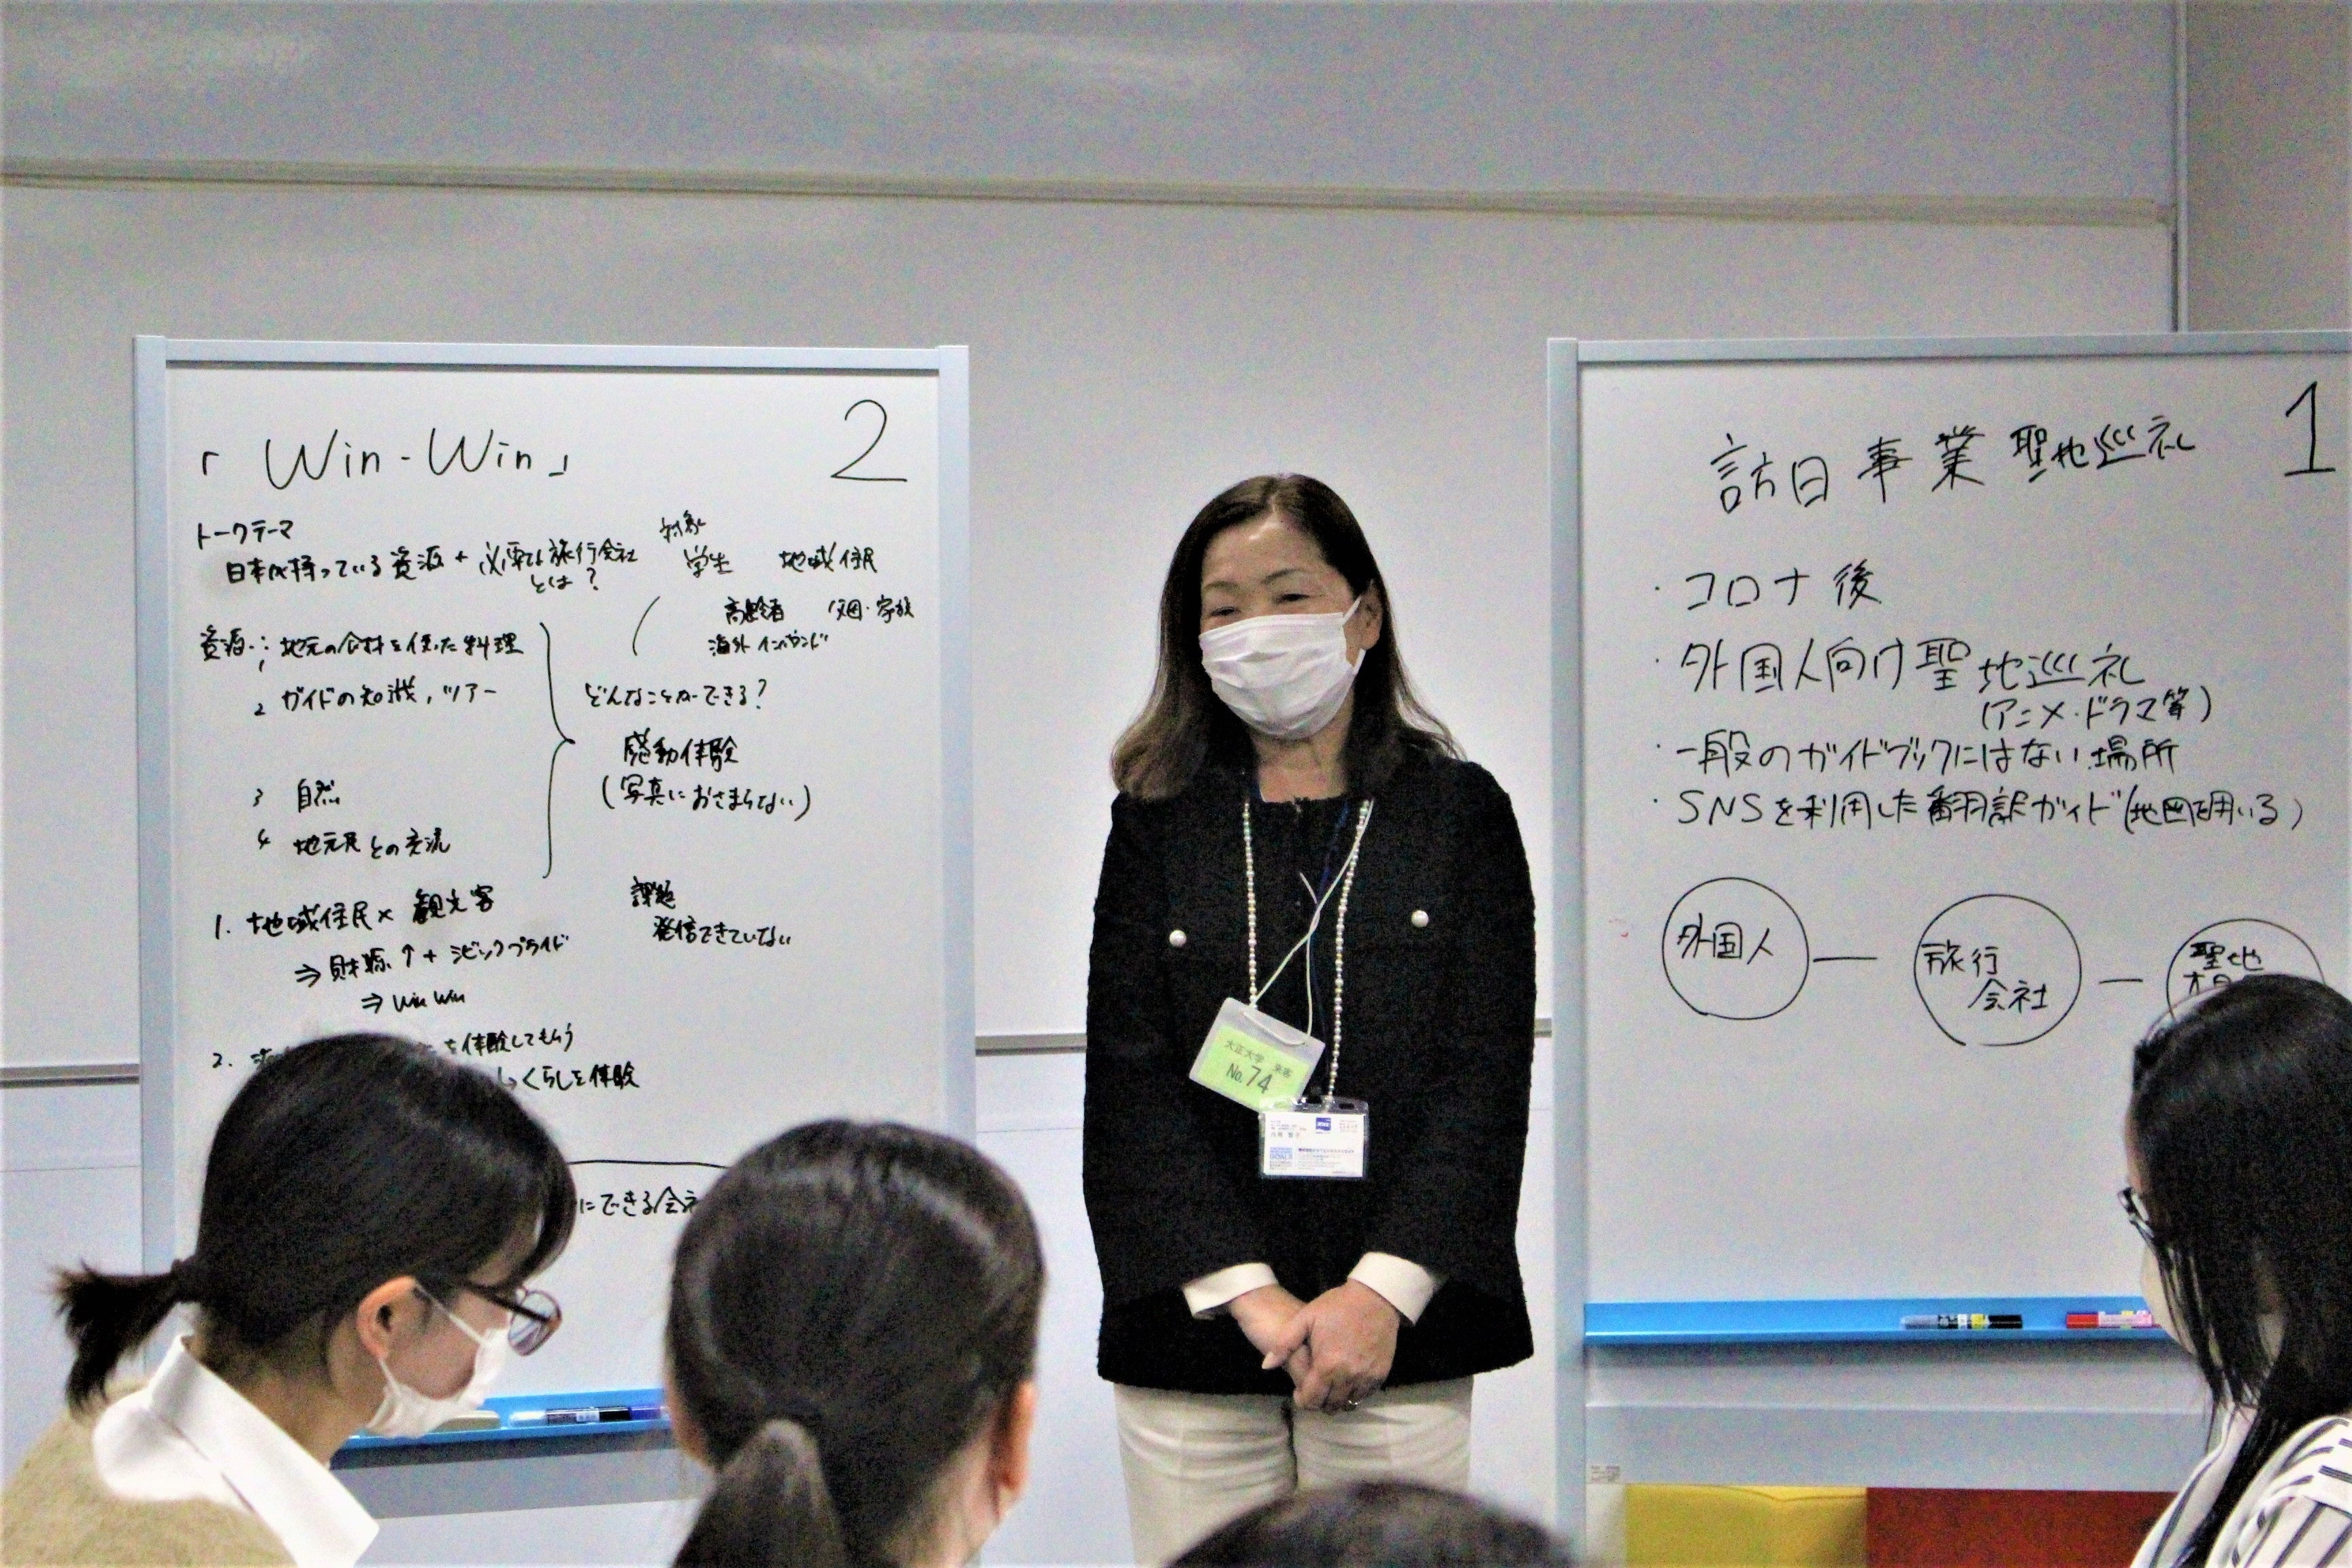 「Win-Win」
2
トークテーマ
日本が持っている資源+必要な旅行会社
とは?
対象
学生 地域住民
高齢者 ・家族
海外インバウンド
資源:
1 地元の食材を使った料理
2 ガイドの知識,ツアー
3 自然
4 地元民との交流
どんなことができる?
感動体験
(写真におさまらない)
課題
発信できていない
1. 地域住民×観光客
⇒財源↑+シビックプライド
⇒win win
2.
を体験してもらう
くらしを体験
にできる会社
訪日事業 聖地巡礼
1
・コロナ後
・外国人向け聖地巡礼
(アニメ・ドラマ等)
・一般のガイドブックにはない場所
・SNSを利用した翻訳ガイド(地図を用いる)
外国人
旅行
会社
聖地
大正大学 来客
No.74